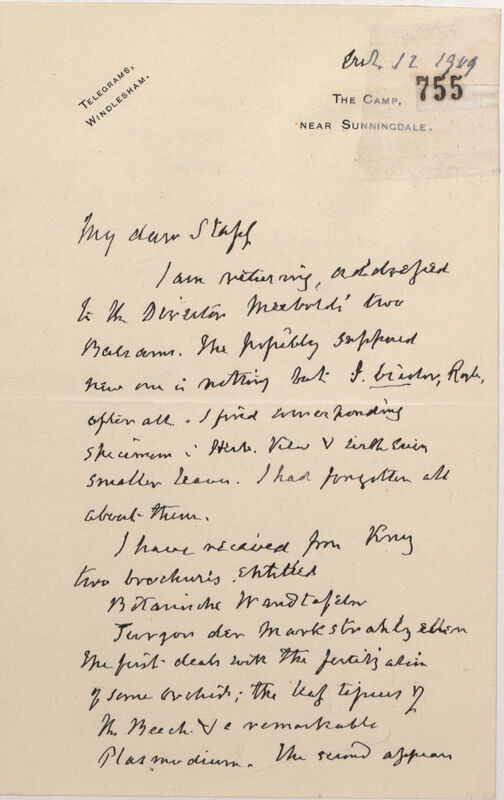 TELEGRAMS,
WINDLESHAM.
12 1909
755
THE CAMP,
NEAR SUNNINGDALE.
My dear Stapf
I am returning, addressed
to the Director Meebold's two
Balsams. The possibly supposed
new one is nothing but I. bicolor, Royle,
after all. I find corresponding
specimens i Herb. Kew & with even
smaller leaves. I had forgotten all
about them.
I have received from Kny
two brochures entitled
Botanische Wandtafeln
Turgor der Markstrahlzellen
The first deals with the fertilization
of some orchids; the leaf tissues of
the Beech & a remarkable
Plasmodium. The second appears